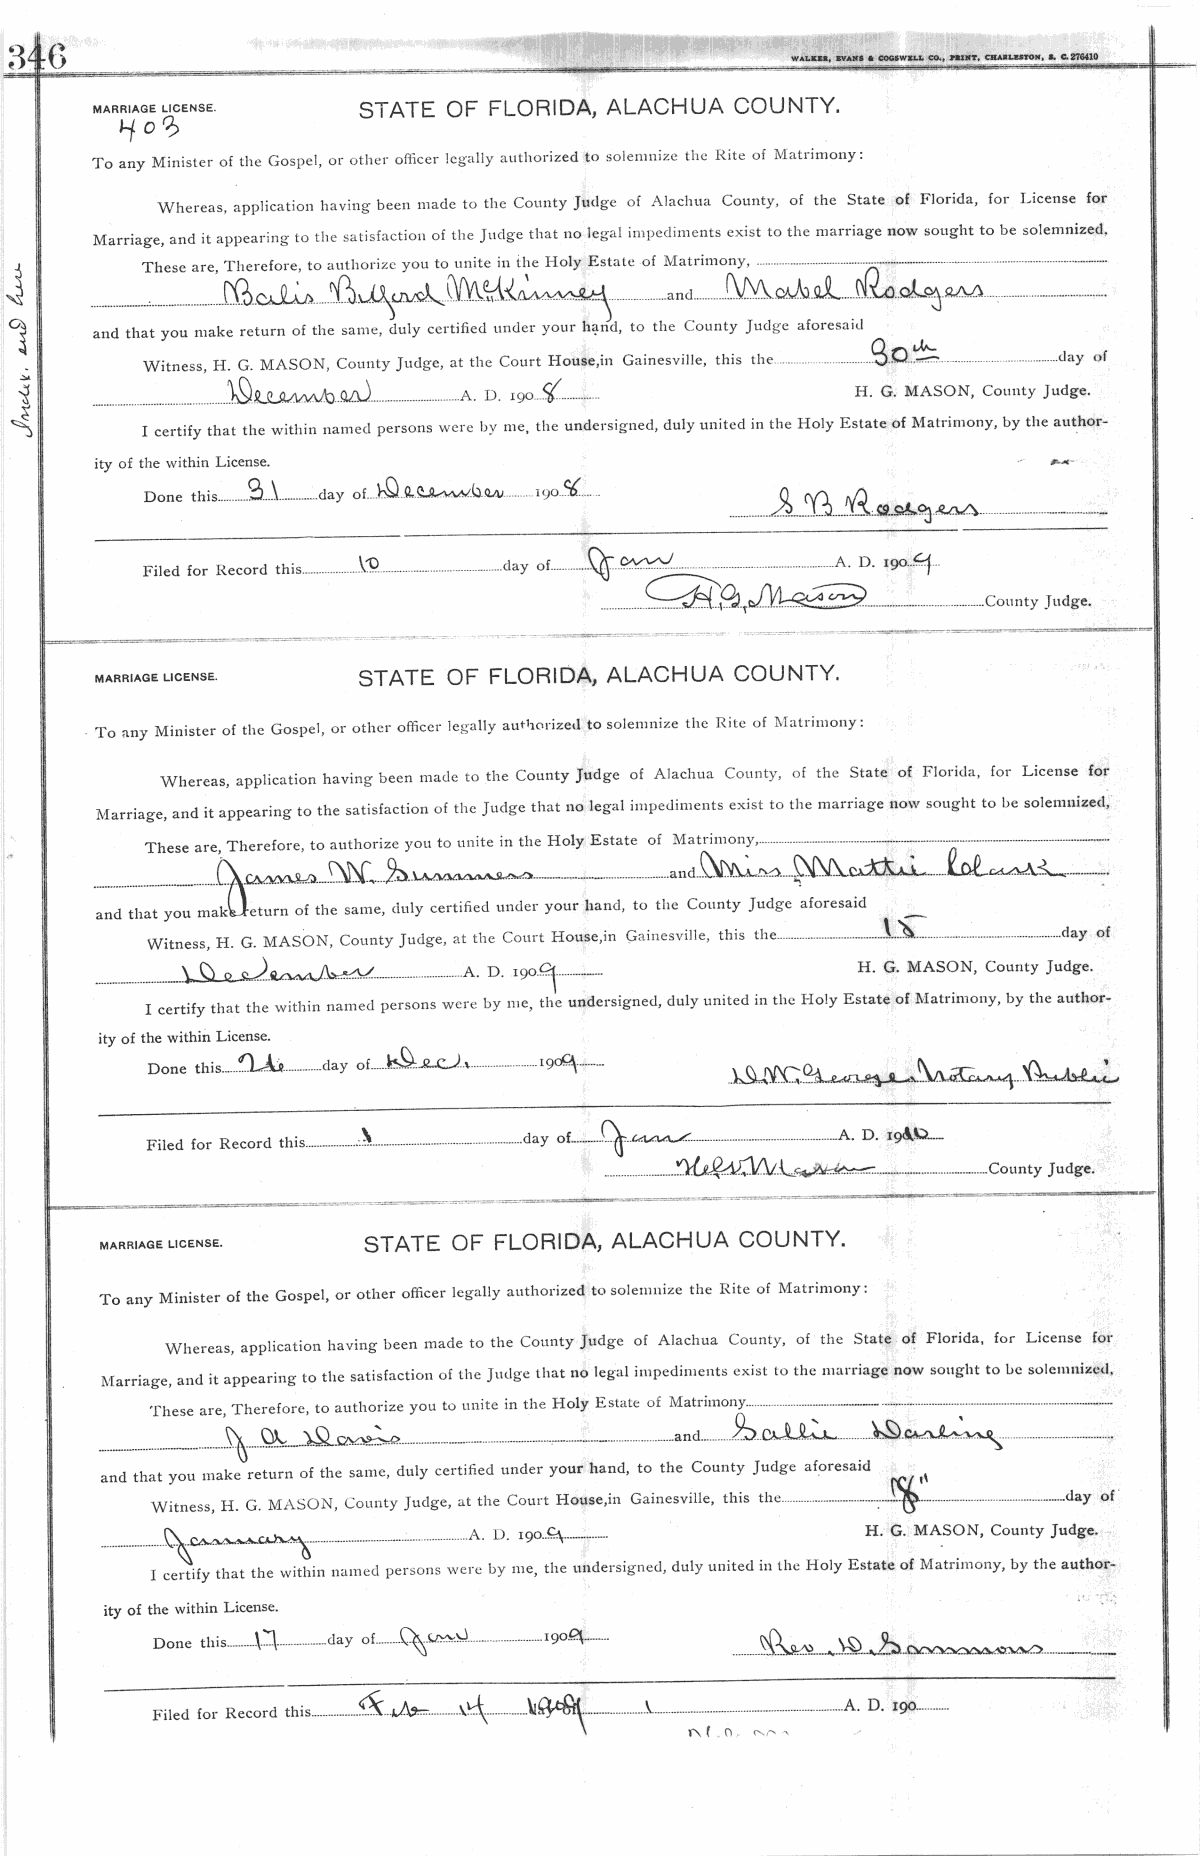 346
WALKER, EVANS & COGSWELL CO., PRINT, CHARLESTON, S. C. 276410
Index. end here
MARRIAGE LICENSE. STATE OF FLORIDA, ALACHUA COUNTY.
403
To any Minister of the Gospel, or other officer legally authorized to solemnize the Rite of Matrimony:
Whereas, application having been made to the County Judge of Alachua County, of the State of Florida, for License for
Marriage, and it appearing to the satisfaction of the Judge that no legal impediments exist to the marriage now sought to be solemnized,
These are, Therefore, to authorize you to unite in the Holy Estate of Matrimony,
Balis Buford McKinney and Mabel Rodgers
and that you make return of the same, duly certified under your hand, to the County Judge aforesaid
Witness, H. G. MASON, County Judge, at the Court House, in Gainesville, this the 30th day of
December A. D. 1908 H. G. MASON, County Judge.
I certify that the within named persons were by me, the undersigned, duly united in the Holy Estate of Matrimony, by the author-
ity of the within License.
Done this 31 day of December 1908
S B Rodgers
Filed for Record this 10 day of Jan A. D. 1909
H. G. Mason County Judge.
MARRIAGE LICENSE. STATE OF FLORIDA, ALACHUA COUNTY.
To any Minister of the Gospel, or other officer legally authorized to solemnize the Rite of Matrimony:
Whereas, application having been made to the County Judge of Alachua County, of the State of Florida, for License for
Marriage, and it appearing to the satisfaction of the Judge that no legal impediments exist to the marriage now sought to be solemnized,
These are, Therefore, to authorize you to unite in the Holy Estate of Matrimony,
James W. Summers and Miss Mattie Clark
and that you make return of the same, duly certified under your hand, to the County Judge aforesaid
Witness, H. G. MASON, County Judge, at the Court House, in Gainesville, this the 15 day of
December A. D. 1909 H. G. MASON, County Judge.
I certify that the within named persons were by me, the undersigned, duly united in the Holy Estate of Matrimony, by the author-
ity of the within License.
Done this 26 day of Dec. 1909
D. W. George Notary Public
Filed for Record this 1 day of Jan A. D. 1910
H. G. Mason County Judge.
MARRIAGE LICENSE. STATE OF FLORIDA, ALACHUA COUNTY.
To any Minister of the Gospel, or other officer legally authorized to solemnize the Rite of Matrimony:
Whereas, application having been made to the County Judge of Alachua County, of the State of Florida, for License for
Marriage, and it appearing to the satisfaction of the Judge that no legal impediments exist to the marriage now sought to be solemnized,
These are, Therefore, to authorize you to unite in the Holy Estate of Matrimony
J A Davis and Sallie Darling
and that you make return of the same, duly certified under your hand, to the County Judge aforesaid
Witness, H. G. MASON, County Judge, at the Court House, in Gainesville, this the 8" day of
January A. D. 1909 H. G. MASON, County Judge.
I certify that the within named persons were by me, the undersigned, duly united in the Holy Estate of Matrimony, by the author-
ity of the within License.
Done this 17 day of Jan 1909
Rev. D. Sammons
Filed for Record this Feb 14 1909 A. D. 190